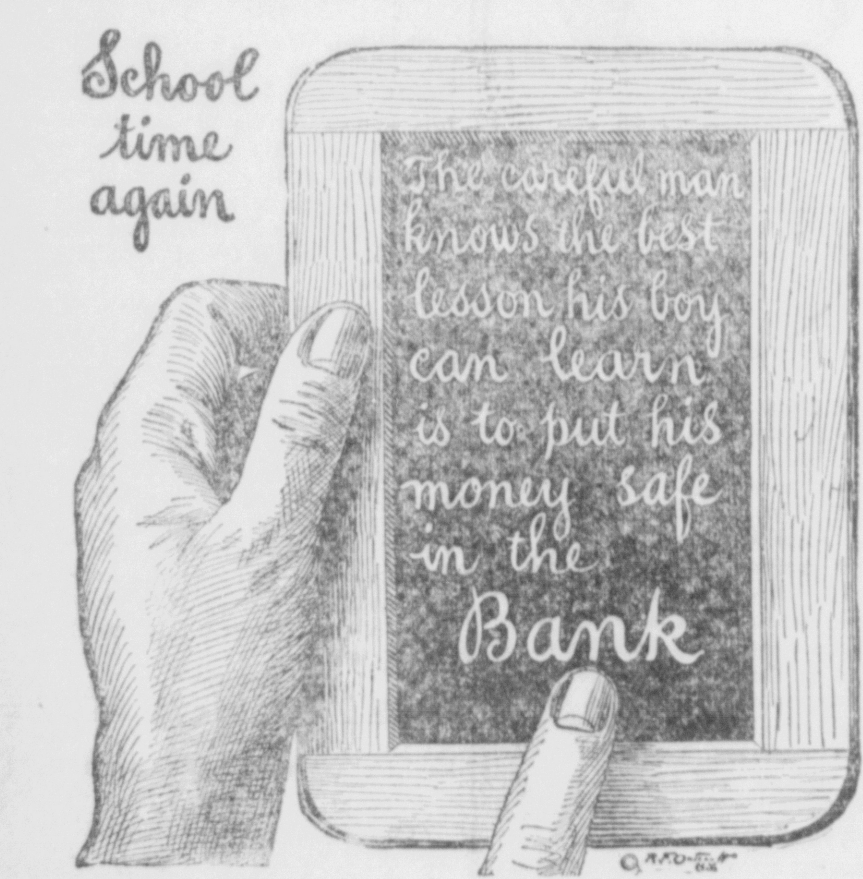 School
time
again
The careful man
knows the best
lesson his boy
can learn
is to put his
money safe
in the
Bank